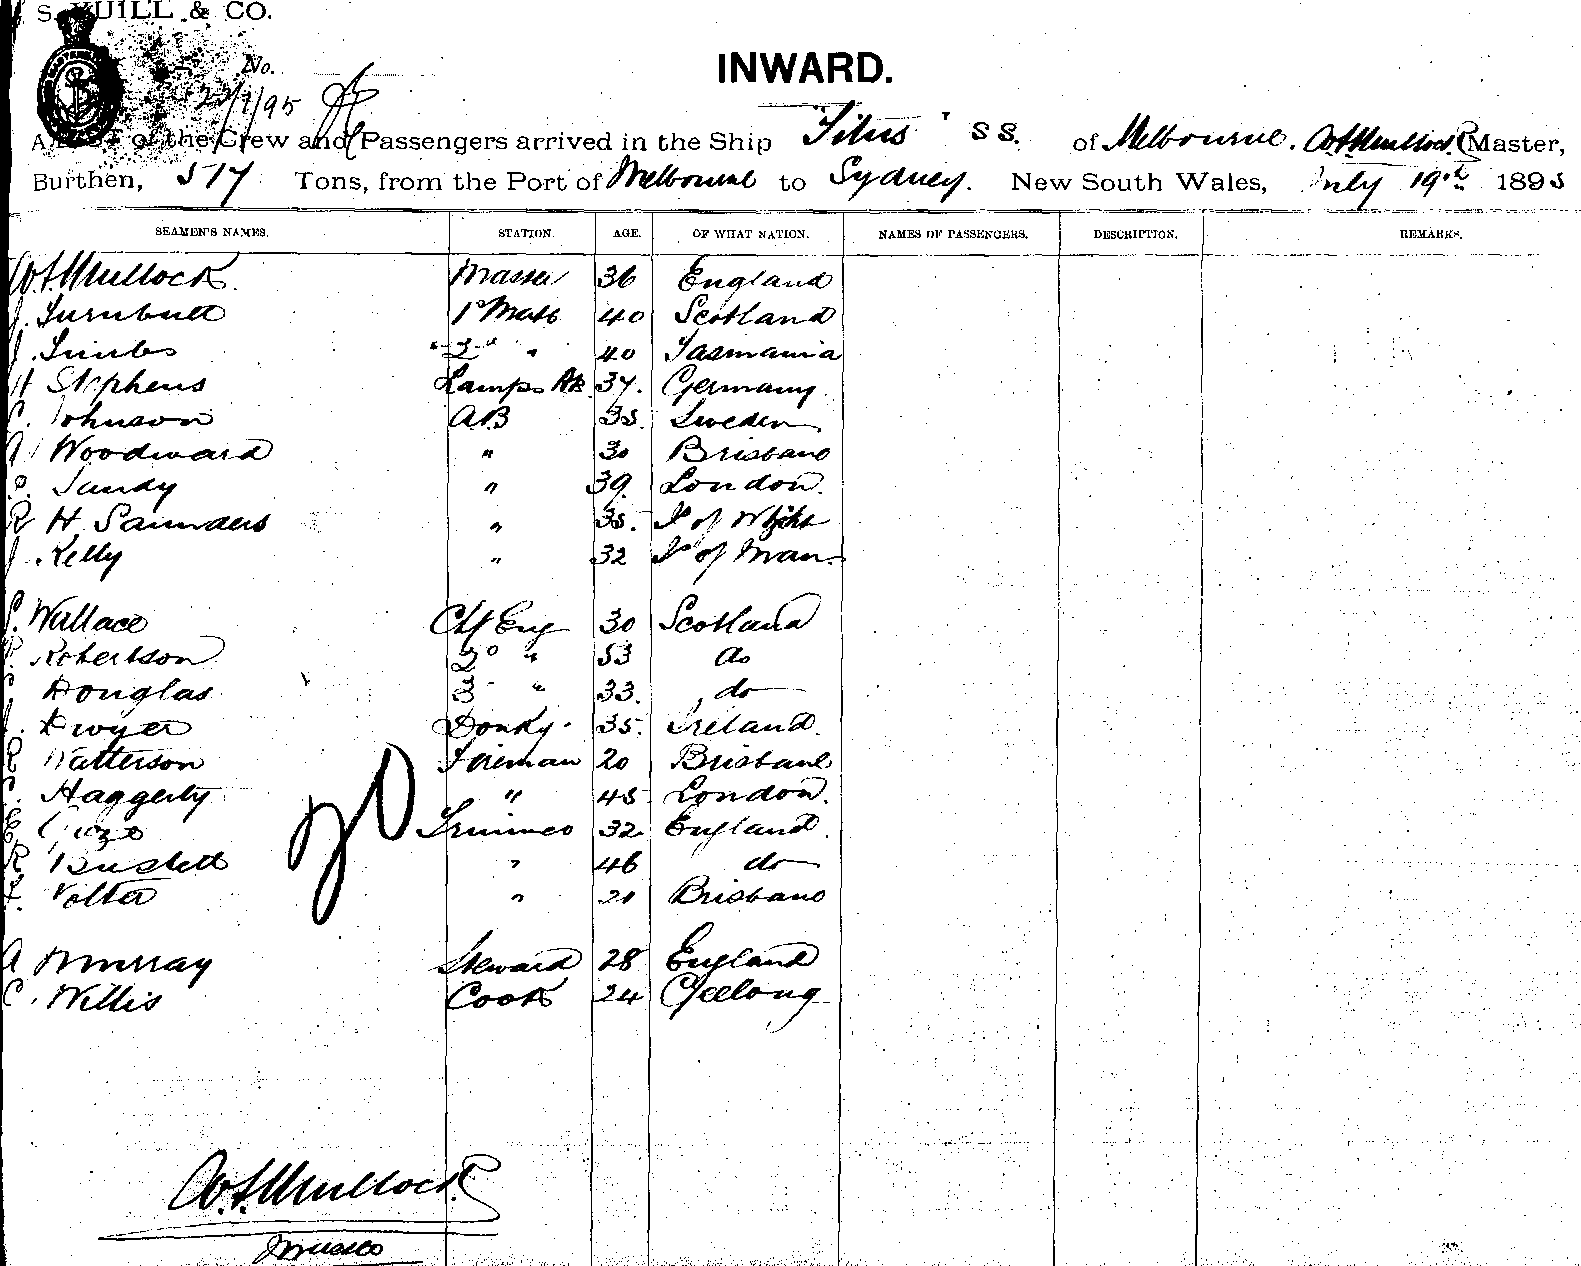 S. YUILL & CO.
No.
INWARD.
22/7/95
A List of the Crew and Passengers arrived in the Ship Titus S S. of Melbourne. W.A. Mullock Master,
Burthen, 517 Tons, from the Port of Melbourne to Sydney. New South Wales, July 19th 1895
SEAMEN'S NAMES. STATION. AGE. OF WHAT NATION. NAMES OF PASSENGERS. DESCRIPTION. REMARKS.
Mullock Master 36 England
J. Turnbull 1st Mate 40 Scotland
J. 2nd " 40 Tasmania
H Stephens Lamps AB 37. Germany
Johnson AB 35. Sweden
Woodward " 30 Brisbane
Sandy " 39. London.
R H. Saunders " 35. I of Wight
J Kelly " 32 I of Man
Wallace Chf Eng 30 Scotland
Robertson 2d " 53 do
Douglas 3 " 33. do
Dwyer Donky. 35. Ireland.
Watterson Fireman 20 Brisbane
Haggerty " 45 London.
Trimmer 32 England.
R " 46 do
F. Volter " 21 Brisbane
A Murray Steward 28 England
C. Willis Cook 24 Geelong
Mullock
Master